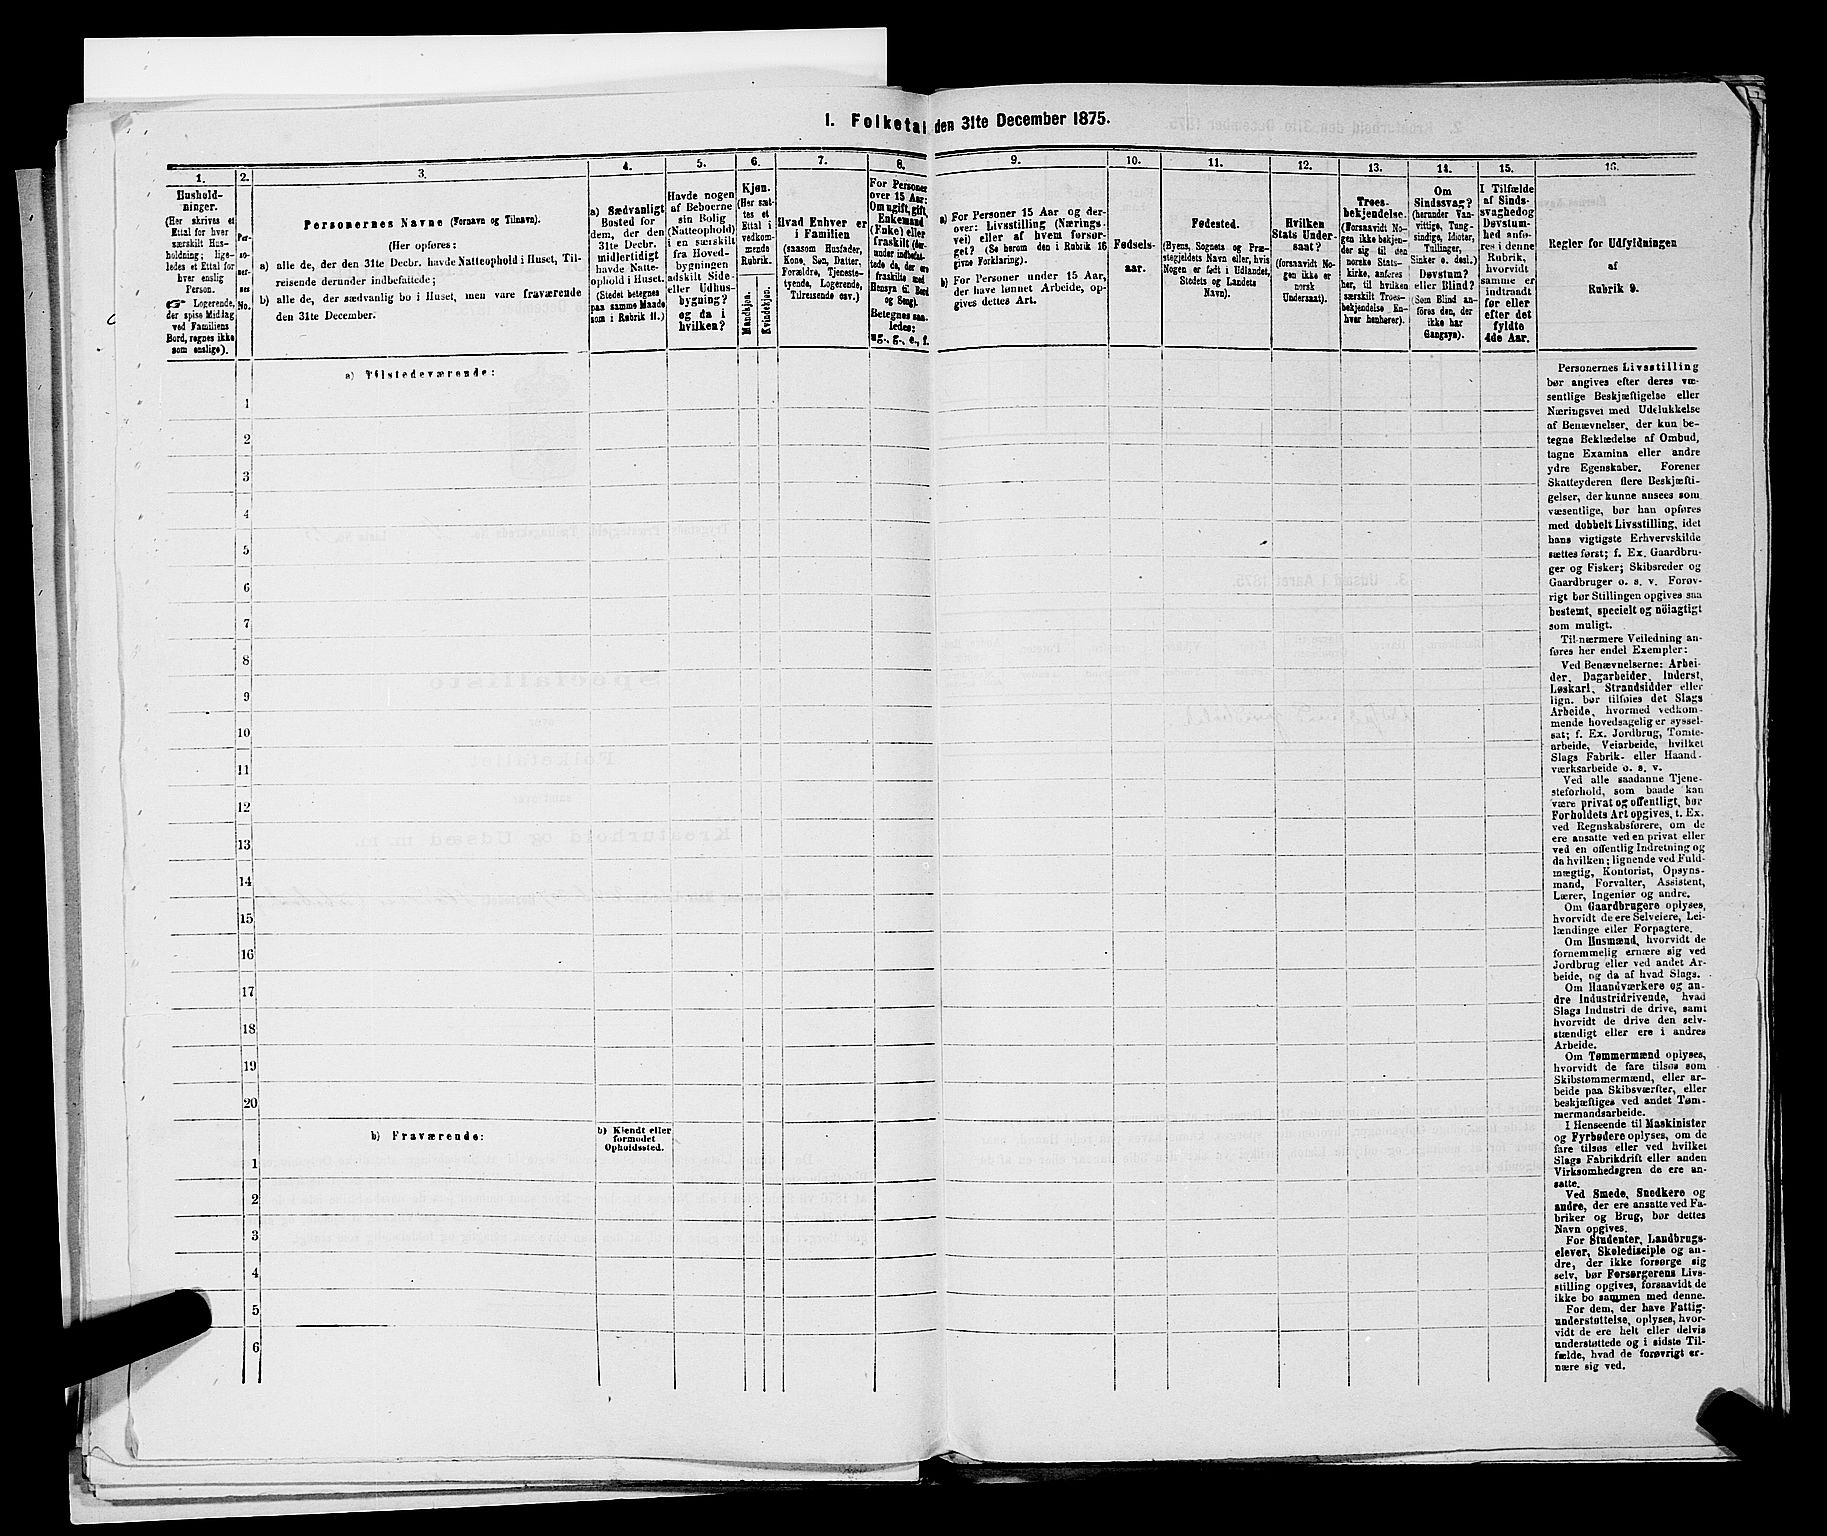 1. Folketal den 31te December 1875.
1.
Hushold-
ninger.
(Her skrives et
Ettal for hver
særskilt Hus-
holdning; lige-
ledes et Ettal for
hver enslig
Person.
☞ Logerende,
der spise Middag
ved Familiens
Bord, regnes ikke
som enslige).
2.
Per-
so-
ner-
nes
No.
3.
Personernes Navne (Fornavn og Tilnavn).
(Her opføres:
a) alle de, der den 31te Decbr. havde Natteophold i Huset, Til-
reisende derunder indbefattede;
b) alle de, der sædvanlig bo i Huset, men vare fraværende
den 31te December.
4.
a) Sædvanligt
Bosted for
dem, der den
31te Decbr.
midlertidigt
havde Natte-
ophold i Huset.
(Stedet betegnes
paa samme Maade
som i Rubrik 11.)
5.
Havde nogen
af Beboerne
sin Bolig
(Natteophold)
i en særskilt
fra Hoved-
bygningen
adskilt Side-
eller Udhus-
bygning?
og da i
hvilken?
6.
Kjøn.
(Her sæt-
tes et
Ettal i
vedkom-
mende
Rubrik.
Mandkjøn.
Kvindekjøn.
7.
Hvad Enhver er
i Familien
(saasom Husfader,
Kone, Søn, Datter,
Forældre, Tjeneste-
tyende, Logerende,
Tilreisende osv.)
8.
For Personer
over 15 Aar:
Om ugift, gift,
Enkemand
(Enke) eller
fraskilt (der-
under indbefat-
tede de, der ere
fraskilte med
Hensyn til Bord
og Seng).
Betegnes saa-
ledes:
ug., g., e., f.
9.
a) For Personer 15 Aar og der-
over: Livsstilling (Nærings-
vei) eller af hvem forsør-
get? (Se herom den i Rubrik 16
givne Forklaring).
b) For Personer under 15 Aar,
der have lønnet Arbeide, op-
gives dettes Art.
10.
Fødsels-
aar.
11.
Fødested.
(Byens, Sognets og Præ-
stegjeldets Navn eller, hvis
Nogen er født i Udlandet,
Stedets og Landets
Navn).
12.
Hvilken
Stats Under-
saat?
(forsaavidt No-
gen ikke er
norsk
Undersaat).
13.
Troes-
bekjendelse.
(Forsaavidt No-
gen ikke bekjen-
der sig til den
norske Stats-
kirke, anføres
her, til hvilken
særskilt Troes-
bekjendelse En-
hver henhører).
14.
Om
Sindssvag?
(herunder Van-
vittige, Tung-
sindige, Idioter,
Tullinger,
Sinker o. desl.)
Døvstum?
eller Blind?
(Som Blind an-
føres den, der
ikke har
Gangsyn).
15.
I Tilfælde
af Sinds-
svaghed og
Døvstum-
hed anfø-
res i denne
Rubrik,
hvorvidt
samme er
indtraadt
før eller
efter det
fyldte
4de Aar.
16.
Regler for Udfyldningen
af
Rubrik 9.
a) Tilstedeværende:
1
2
3
4
5
6
7
8
9
10
11
12
13
14
15
16
17
18
19
20
b) Fraværende:
b) Kjendt eller
formodet
Opholdssted.
1
2
3
4
5
6
Personernes Livsstilling
bør angives efter deres væ-
sentlige Beskjæftigelse eller
Næringsvei med Udelukkelse
af Benævnelser, der kun be-
tegne Beklædelse af Ombud,
tagne Examina eller andre
ydre Egenskaber. Forener
Skatteyderen flere Beskjæfti-
gelser, der kunne ansees som
væsentlige, bør han opføres
med dobbelt Livsstilling, idet
hans vigtigste Erhvervskilde
sættes først; f. Ex. Gaardbru-
ger og Fisker; Skibsreder og
Gaardbruger o. s. v. Forøv-
rigt bør Stillingen opgives saa
bestemt, specielt og nöiagtigt
som muligt.
Til nærmere Veiledning an-
føres her endel Exempler:
Ved Benævnelserne: Arbei-
der, Dagarbeider, Inderst,
Løskarl, Strandsidder eller
lign. bør tilføies det Slags
Arbeide, hvormed vedkom-
mende hovedsagelig er syssel-
sat; f. Ex. Jordbrug, Tomte-
arbeide, Veiarbeide, hvilket
Slags Fabrik- eller Haand-
værksarbeide o. s. v.
Ved alle saadanne Tjene-
steforhold, som baade kan
være privat og offentligt, bør
Forholdets Art opgives, f. Ex.
ved Regnskabsførere, om de
ere ansatte ved en privat eller
ved en offentlig Indretning og
da hvilken; lignende ved Fuld-
mægtig, Kontorist, Opsyns-
mand, Forvalter, Assistent,
Lærer, Ingeniør og andre.
Om Gaardbrugere oplyses,
hvorvidt de ere Selveiere, Lei-
lændinge eller Forpagtere.
Om Husmænd, hvorvidt de
fornemmelig ernære sig ved
Jordbrug eller ved andet Ar-
beide, og da af hvad Slags.
Om Haandværkere og an-
dre Industridrivende, hvad
Slags Industri de drive, samt
hvorvidt de drive den selv-
stændigt eller ere i andres
Arbeide.
Om Tømmermænd oplyses,
hvorvidt de fare tilsøs som
Skibstømmermænd, eller ar-
beide paa Skibsværfter, eller
beskjæftiges ved andet Tøm-
mermandsarbeide.
I Henseende til Maskinister
og Fyrbødere oplyses, om de
fare tilsøs eller ved hvilket
Slags Fabrikdrift eller anden
Virksomhedsgren de ere an-
satte.
Ved Smede, Snedkere og
andre, der ere ansatte ved Fa-
briker og Brug, bør dettes
Navn opgives.
For Studenter, Landbrugs-
elever, Skoledisciple og an-
dre, der ikke forsørge sig
selv, bør Forsørgerens Livs-
stilling opgives, forsaavidt de
ikke bo sammen med denne.
For dem, der have Fattig-
understøttelse, oplyses, hvor-
vidt de ere helt eller delvis
understøttede og i sidste Til-
fælde, hvad de forøvrigt er-
nære sig ved.